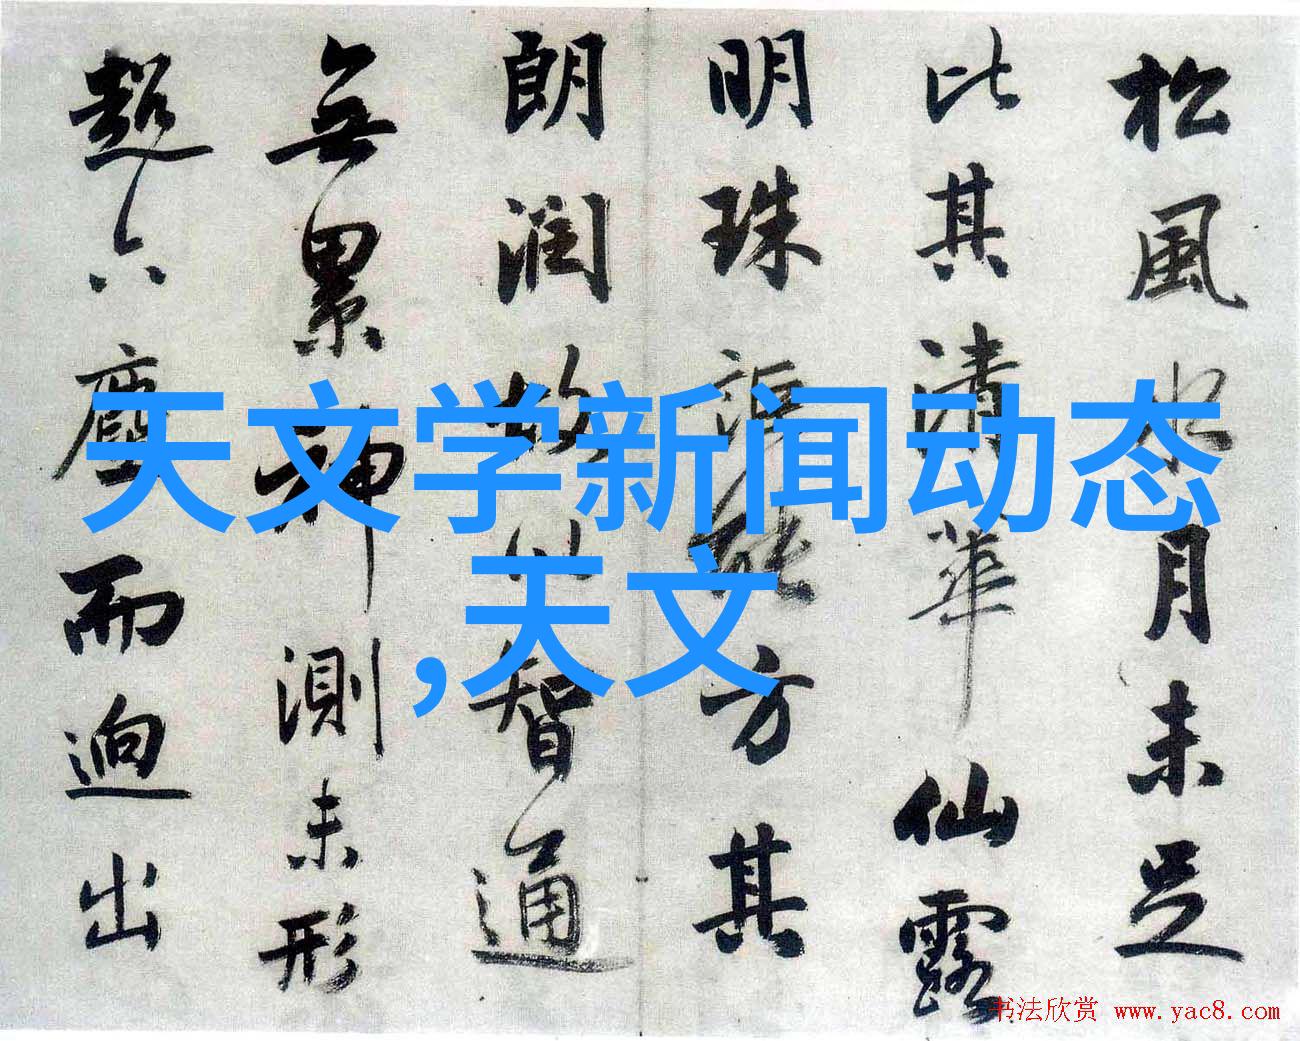 松風水月未足
比其清華仙露
明珠詎能方其
朗潤故以智通
無累神測未形
超六塵而迥出
天文学新闻动态
,天文
书法欣赏 www.yac8.com